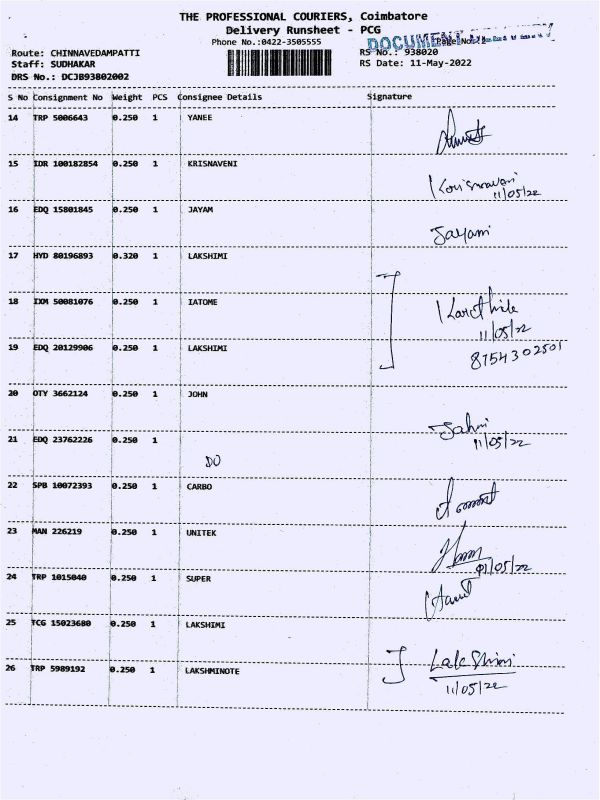 THE PROFESSIONAL COURIERS, Coimbatore
Delivery Runsheet - PCG
DOCUMENT
Phone No.:0422-3505555
Route: CHINNAVEDAMPATTI
RS No.: 938020
Staff: SUDHAKAR
RS Date: 11-May-2022
DRS No.: DCJB93802002
S No Consignment No Weight PCS Consignee Details Signature
14 TRP 5006643 0.250 1 YANEE
15 IDR 100182854 0.250 1 KRISNAVENI
11/05/22
16 EDQ 15801845 0.250 1 JAYAM
Jayam
17 HYD 80196893 0.320 1 LAKSHIMI
18 IXM 50081076 0.250 1 IATOME
Karthik
11/05/22
19 EDQ 20129906 0.250 1 LAKSHIMI
8754302501
20 OTY 3662124 0.250 1 JOHN
11/05/22
21 EDQ 23762226 0.250 1
DO
22 SPB 10072393 0.250 1 CARBO
23 MAN 226219 0.250 1 UNITEK
11/05/22
24 TRP 1015040 0.250 1 SUPER
25 TCG 15023680 0.250 1 LAKSHIMI
26 TRP 5989192 0.250 1 LAKSHMINOTE
Lakshimi
11/05/22